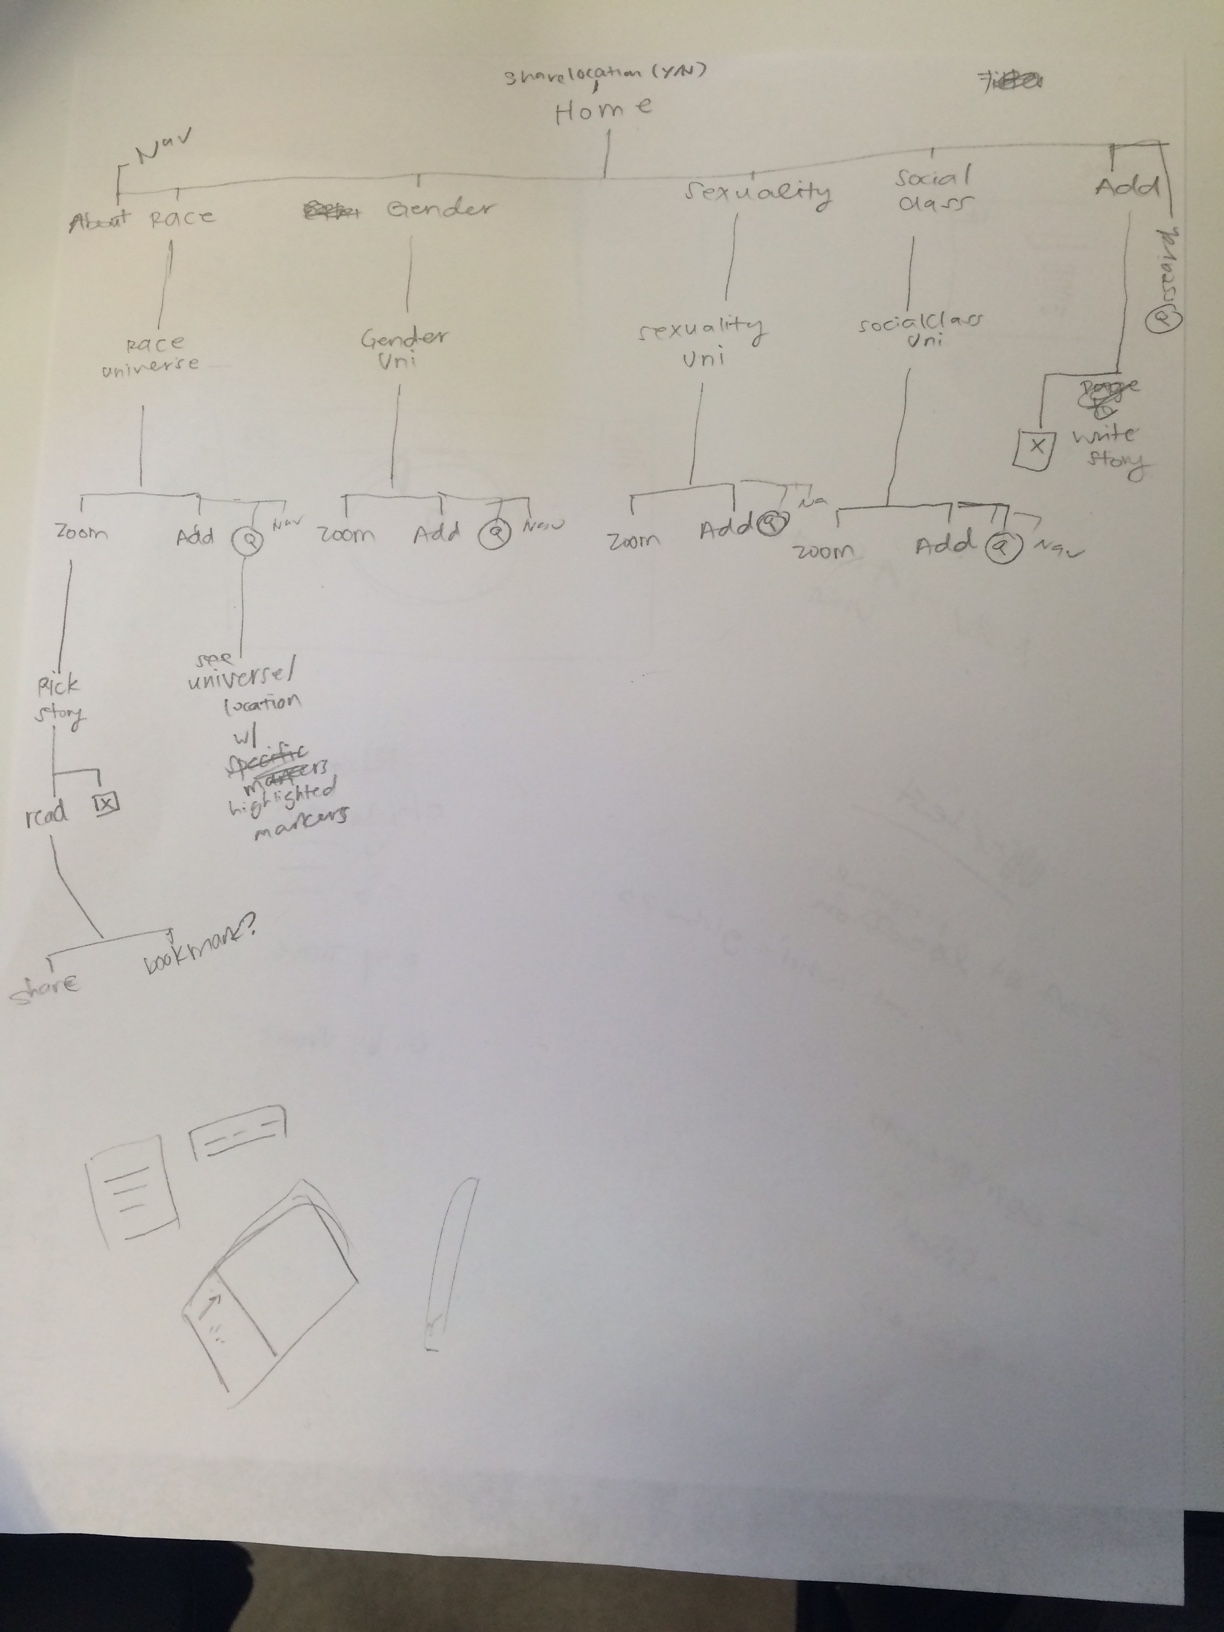 Share location (Y/N)
Home
Nav
About Race
Gender
Sexuality
Social
class
Add
Q
Race
universe
Gender
Uni
sexuality
Uni
social class
Uni
X
write
story
Zoom
Add
Q
Nav
Zoom
Add
Q
Nav
Zoom
Add
Q
Na
Zoom
Add
Q
Nav
Pick
story
see
universe/
location
w/
specific
markers
highlighted
markers
read
X
share
bookmark?